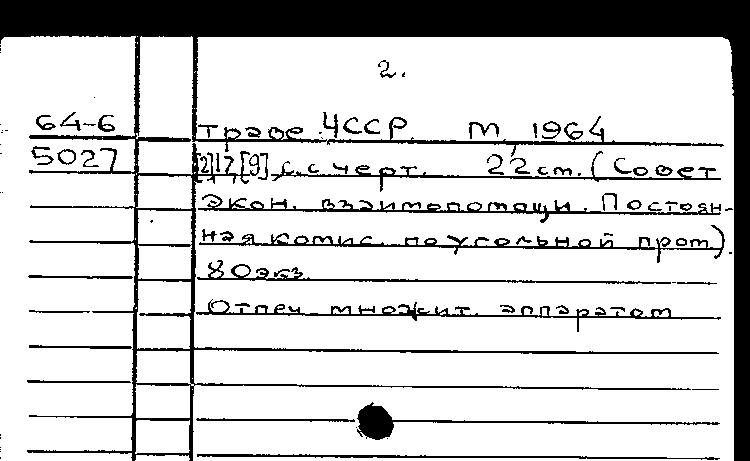 2.
64-6 Траве ЧССР. М, 1964
5027 [2],17,[9] с. с черт. 22 см. (Совет
Экон. взаимопомощи. Постоян-
ная комис. по угольной пром).
80 экз.
Отпеч. множит. аппаратом